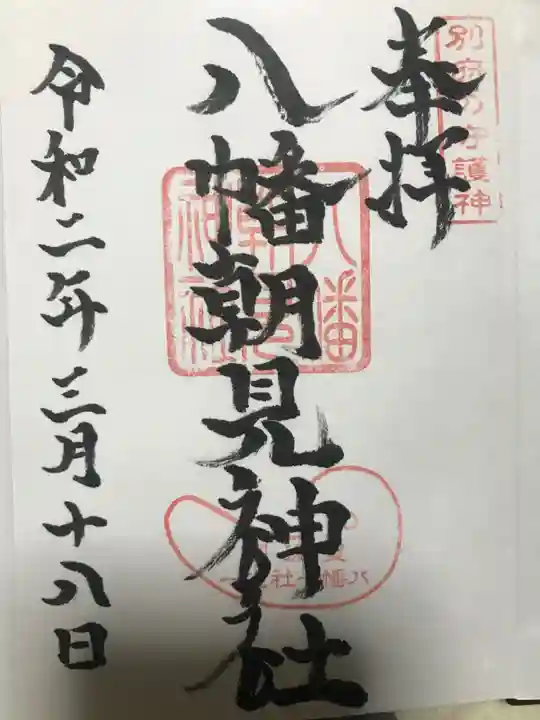 奉拝
別府乃守護神
八幡朝見神社
八幡朝見神社
令和二年三月十八日